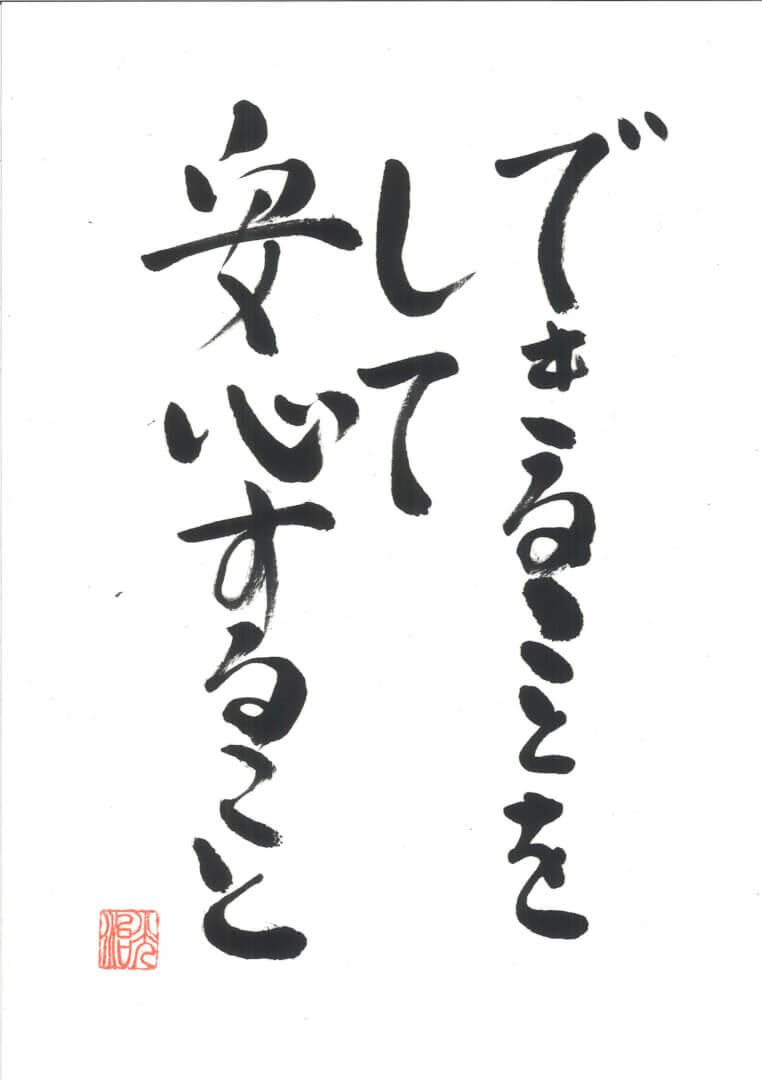 できることを
して
安心すること